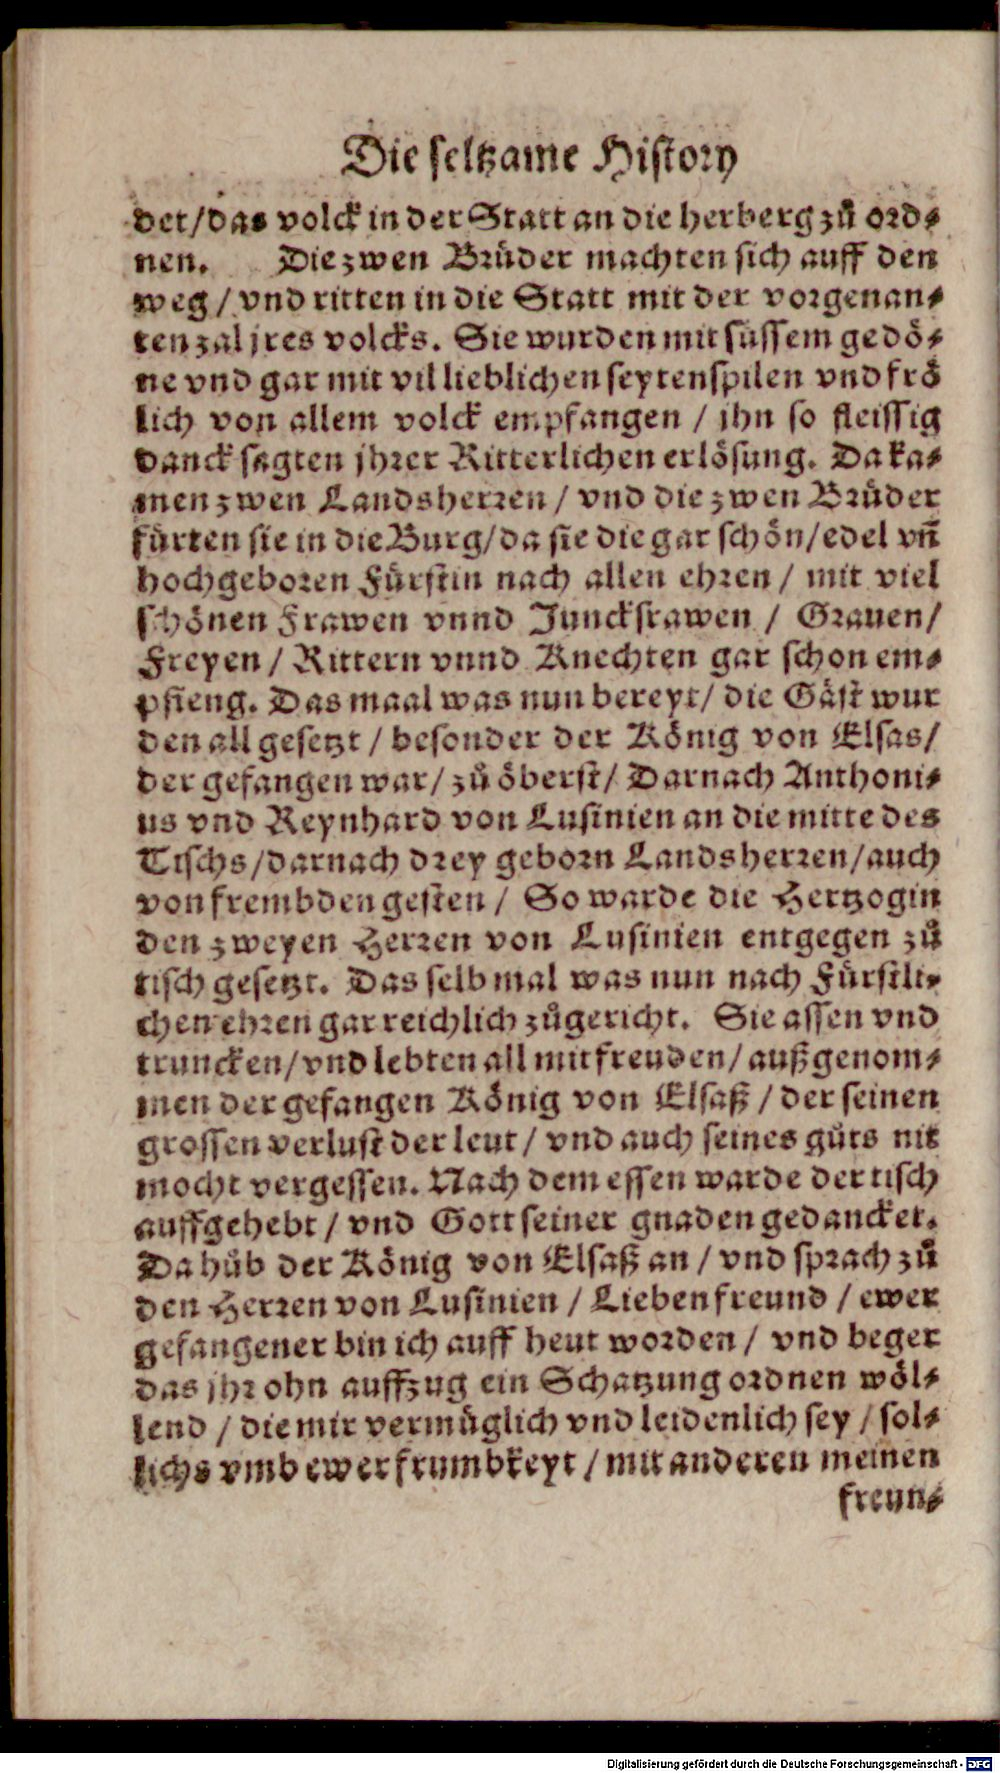 Die seltzame History
det/das volck in der Statt an die herberg zů ord⸗
nen. Die zwen Brüder machten sich auff den
weg / vnd ritten in die Statt mit der vorgenan⸗
ten zal jres volcks. Sie wurden mit süssem gedö⸗
ne vnd gar mit vil lieblichen seytenspilen vnd frö
lich von allem volck empfangen / jhn so fleissig
danck sagten jhrer Ritterlichen erlösung. Da ka⸗
men zwen Landsherren / vnd die zwen Brüder
fürten sie in die Burg/da sie die gar schön/edel vñ
hochgeboren Fürstin nach allen ehren / mit viel
schönen Frawen vnnd Junckfrawen / Grauen/
Freyen / Rittern vnnd Knechten gar schon em⸗
pfieng. Das maal was nun bereyt/ die Gäst wur
den all gesetzt / besonder der König von Elsas/
der gefangen war/ zů öberst/ Darnach Anthoni⸗
us vnd Reynhard von Lusinien an die mitte des
Tischs/darnach drey geborn Landsherren/auch
von frembden gesten / So warde die Hertzogin
den zweyen Herren von Lusinien entgegen zů
tisch gesetzt. Das selb mal was nun nach Fürstli⸗
chen ehren gar reichlich zůgericht. Sie assen vnd
truncken/vnd lebten all mit freuden/ außgenom⸗
men der gefangen König von Elsaß / der seinen
grossen verlust der leut / vnd auch seines gůts nit
mocht vergessen. Nach dem essen warde der tisch
auffgehebt / vnd Gott seiner gnaden gedancket.
Da hůb der König von Elsaß an / vnd sprach zů
den Herren von Lusinien / Lieben freund / ewer
gefangener bin ich auff heut worden / vnd beger
das jhr ohn auffzug ein Schatzung ordnen wöl⸗
lend / die mir vermüglich vnd leidenlich sey / sol⸗
lichs vmb ewer frumbkeyt / mit anderen meinen
freun⸗
Digitalisierung gefördert durch die Deutsche Forschungsgemeinschaft - DFG